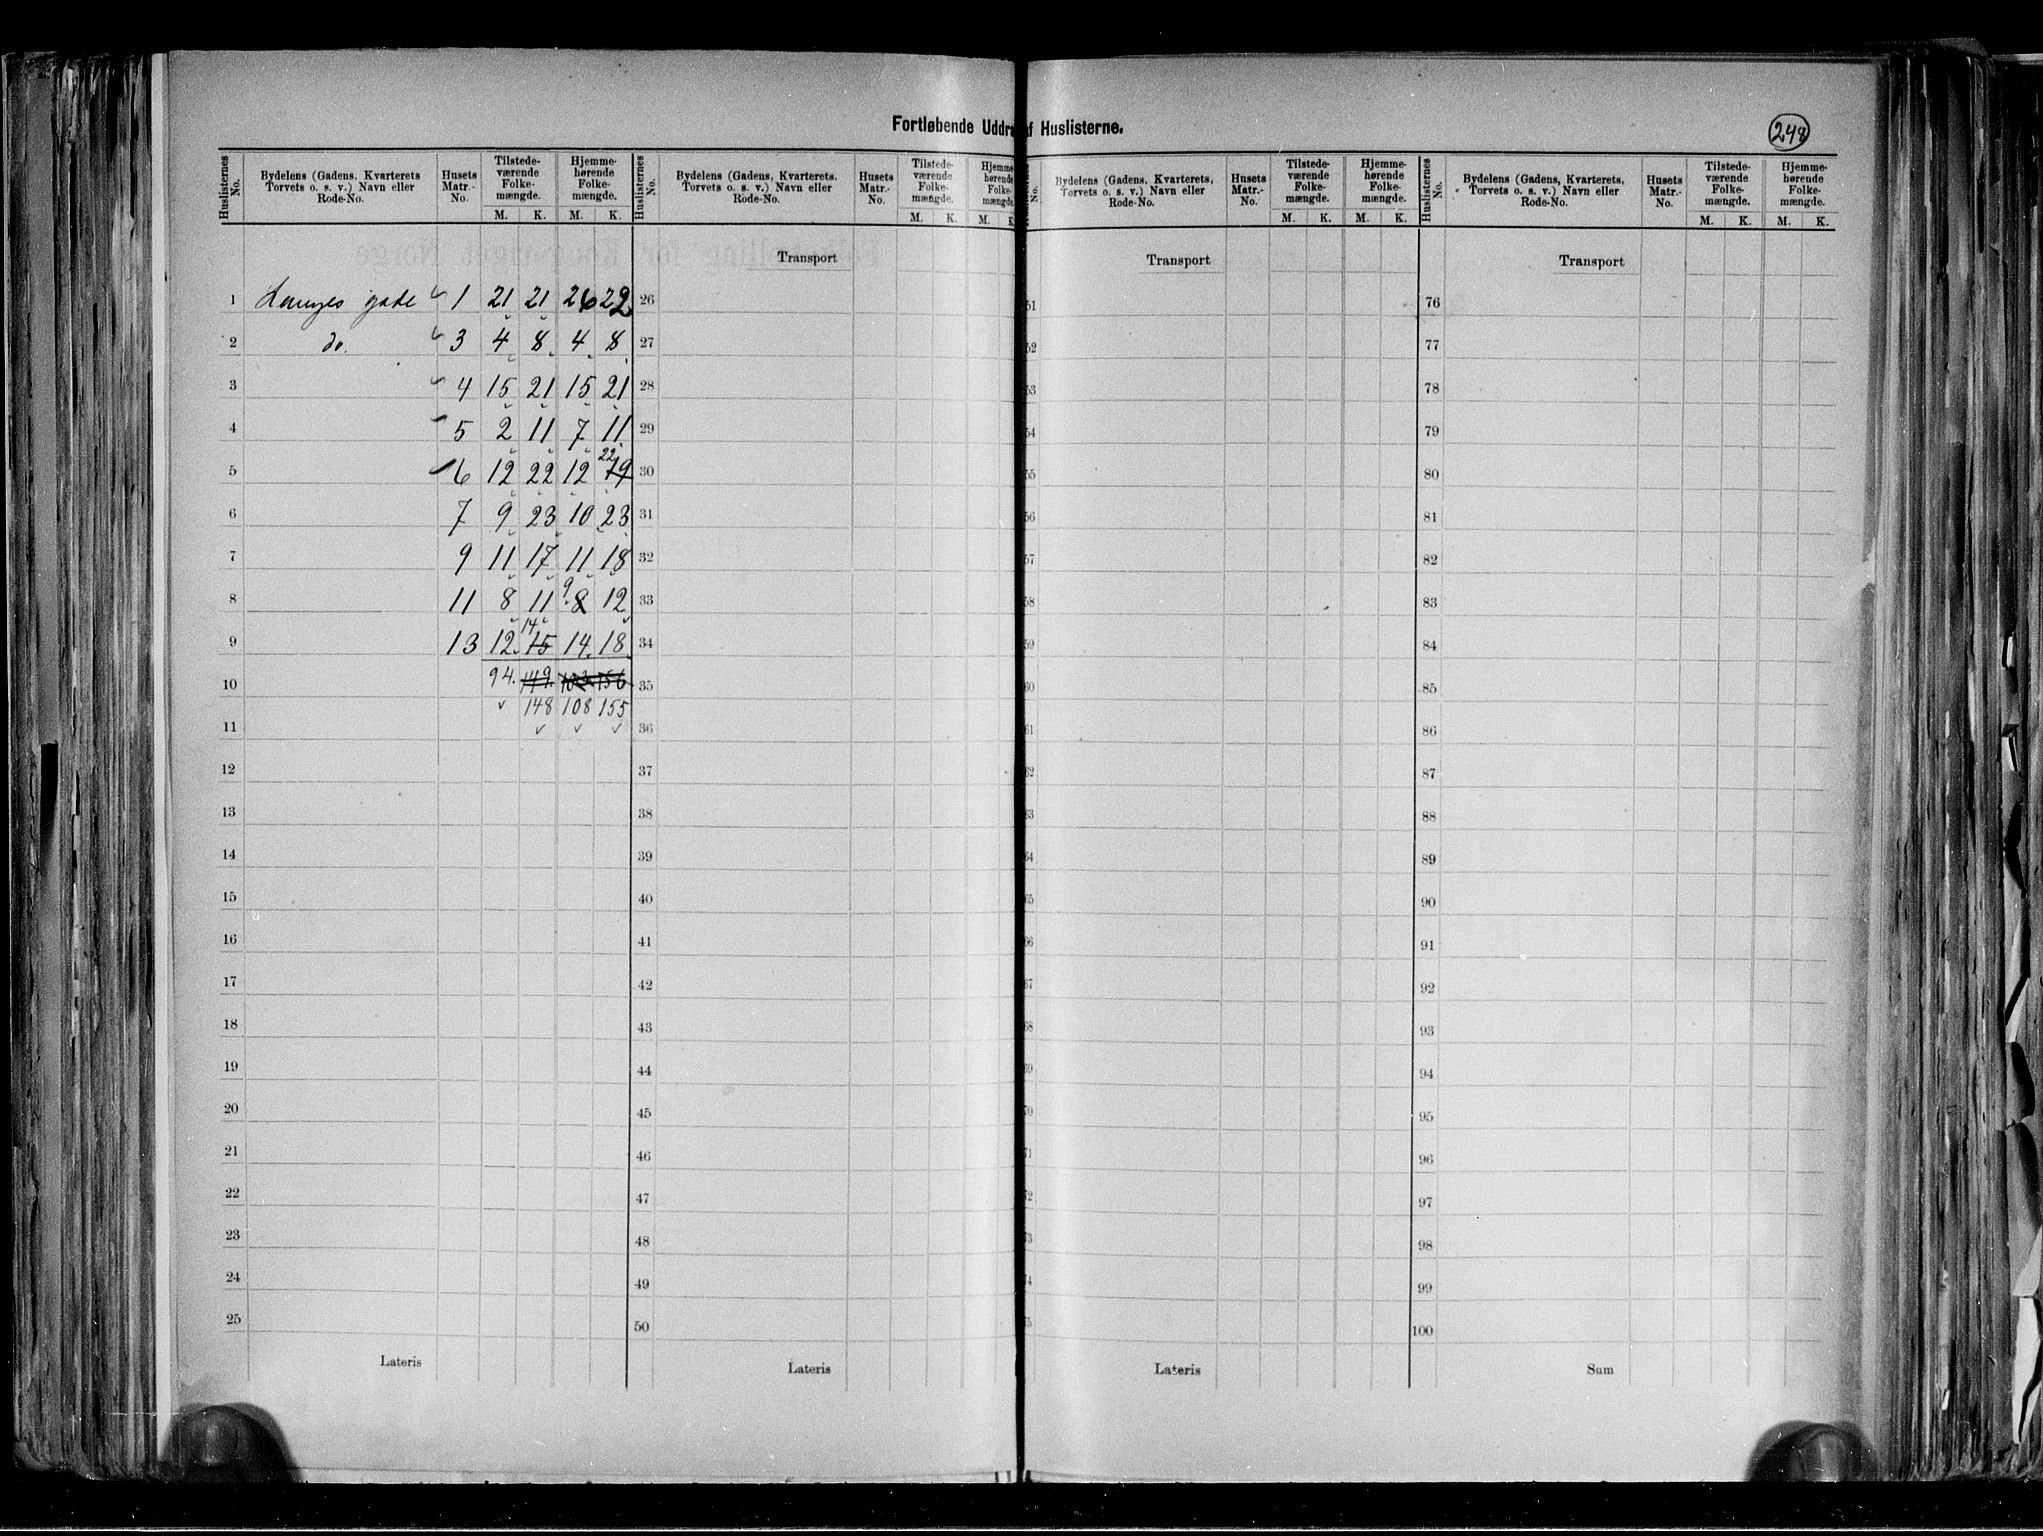 Fortløbende Uddra af Huslisterne.
248
Huslisternes No. Bydelens (Gadens, Kvarterets Torvets o. s. v.) Navn eller Rode-No. Husets Matr.-No. Tilstede-værende Folke-mængde. M. K. Hjemme-hørende Folke-mængde. M. K.
Huslisternes No. Bydelens (Gadens, Kvarterets, Torvets o. s. v.) Navn eller Rode-No. Husets Matr.-No. Tilstede-værende Folke-mængde. M. K. Hjemme-hørende Folke-mængde. M. K
No. Bydelens (Gadens, Kvarterets, Torvets o. s. v.) Navn eller Rode-No. Husets Matr.-No. Tilstede-værende Folke-mængde. M. K. Hjemme-hørende Folke-mængde. M. K.
Huslisternes No. Bydelens (Gadens, Kvarterets, Torvets o. s. v.) Navn eller Rode-No. Husets Matr.-No. Tilstede-værende Folke-mængde. M. K. Hjemme-hørende Folke-mængde. M. K.
1 gade 1 21 21 26 22
2 do. 3 4 8 4 8
3 4 15 21 15 21
4 5 2 11 7 11
5 6 12 22 12 19 22
6 7 9 23 10 23
7 9 11 17 11 18
8 11 8 11 8 9 12
9 13 12 15 14 14 18
10 94. 149 103 156
148 108 155
11
12
13
14
15
16
17
18
19
20
21
22
23
24
25
Lateris
Transport
26
27
28
29
30
31
32
33
34
35
36
37
38
39
40
41
42
43
44
45
46
47
48
49
50
Lateris
Transport
51
52
53
54
55
56
57
58
59
60
61
62
63
64
65
66
67
68
69
70
71
72
73
74
75
Lateris
Transport
76
77
78
79
80
81
82
83
84
85
86
87
88
89
90
91
92
93
94
95
96
97
98
99
100
Sum